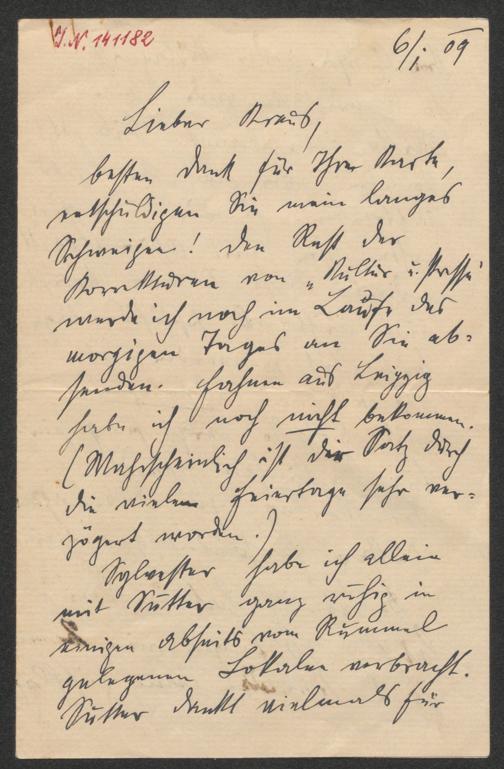 I.N. 141182
6/I. 09
Lieber Kraus,
besten Dank für Ihre Karte,
entschuldigen Sie mein langes
Schweigen! Den Rest der
Korrekturen von „Kultur u. Presse"
werde ich noch im Laufe des
morgigen Tages an Sie ab-
senden. Fahnen aus Leipzig
habe ich noch nicht bekommen.
(Wahrscheinlich ist der Satz durch
die vielen Feiertage sehr ver-
zögert worden.)
Sylvester habe ich allein
mit Sutter ganz ruhig in
einigen abseits vom Rummel
gelegenen Lokalen verbracht.
Sutter dankt vielmals für